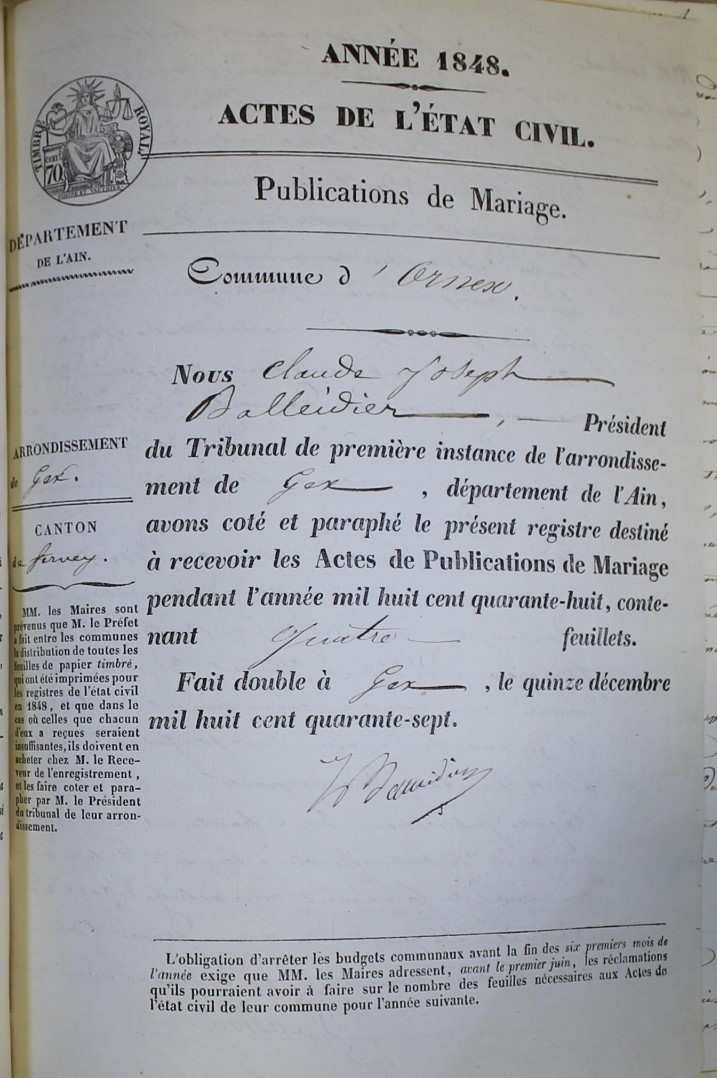 1
ANNÉE 1848.
ACTES DE L'ÉTAT CIVIL.
TIMBRE ROYAL
70
Publications de Mariage.
DÉPARTEMENT
DE L'AIN.
Commune d'Ornex.
Nous Claude Joseph
Balleidier, Président
du Tribunal de première instance de l'arrondisse-
ment de Gex, département de l'Ain,
avons coté et paraphé le présent registre destiné
à recevoir les Actes de Publications de Mariage
pendant l'année mil huit cent quarante-huit, conte-
nant quatre feuillets.
Fait double à Gex, le quinze décembre
mil huit cent quarante-sept.
ARRONDISSEMENT
de Gex.
CANTON
de Ferney.
MM. les Maires sont
prévenus que M. le Préfet
a fait entre les communes
la distribution de toutes les
feuilles de papier timbré,
qui ont été imprimées pour
les registres de l'état civil
en 1848, et que dans le
cas où celles que chacun
d'eux a reçues seraient
insuffisantes, ils doivent en
acheter chez M. le Rece-
veur de l'enregistrement,
et les faire coter et para-
pher par M. le Président
du tribunal de leur arron-
dissement.
L'obligation d'arrêter les budgets communaux avant la fin des six premiers mois de
l'année exige que MM. les Maires adressent, avant le premier juin, les réclamations
qu'ils pourraient avoir à faire sur le nombre des feuilles nécessaires aux Actes de
l'état civil de leur commune pour l'année suivante.